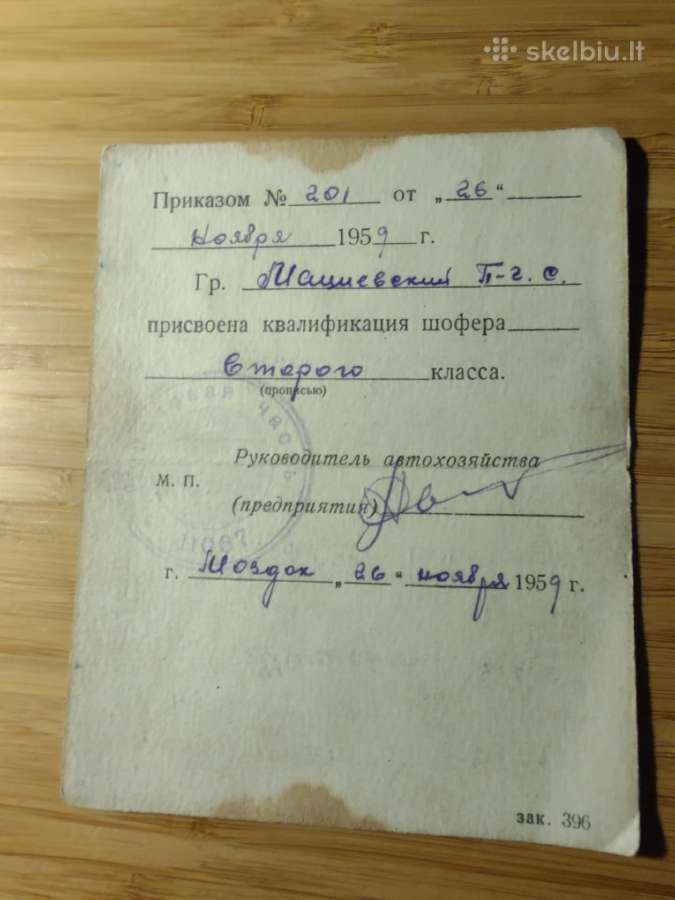 skelbiu.lt
Приказом № 201 от „26“
ноября 1959 г.
Гр. Мациевский П-г. С.
присвоена квалификация шофера
второго класса.
(прописью)
Руководитель автохозяйства
М. П.
(предприятия)
г. Моздок „26“ ноября 1959 г.
зак. 396